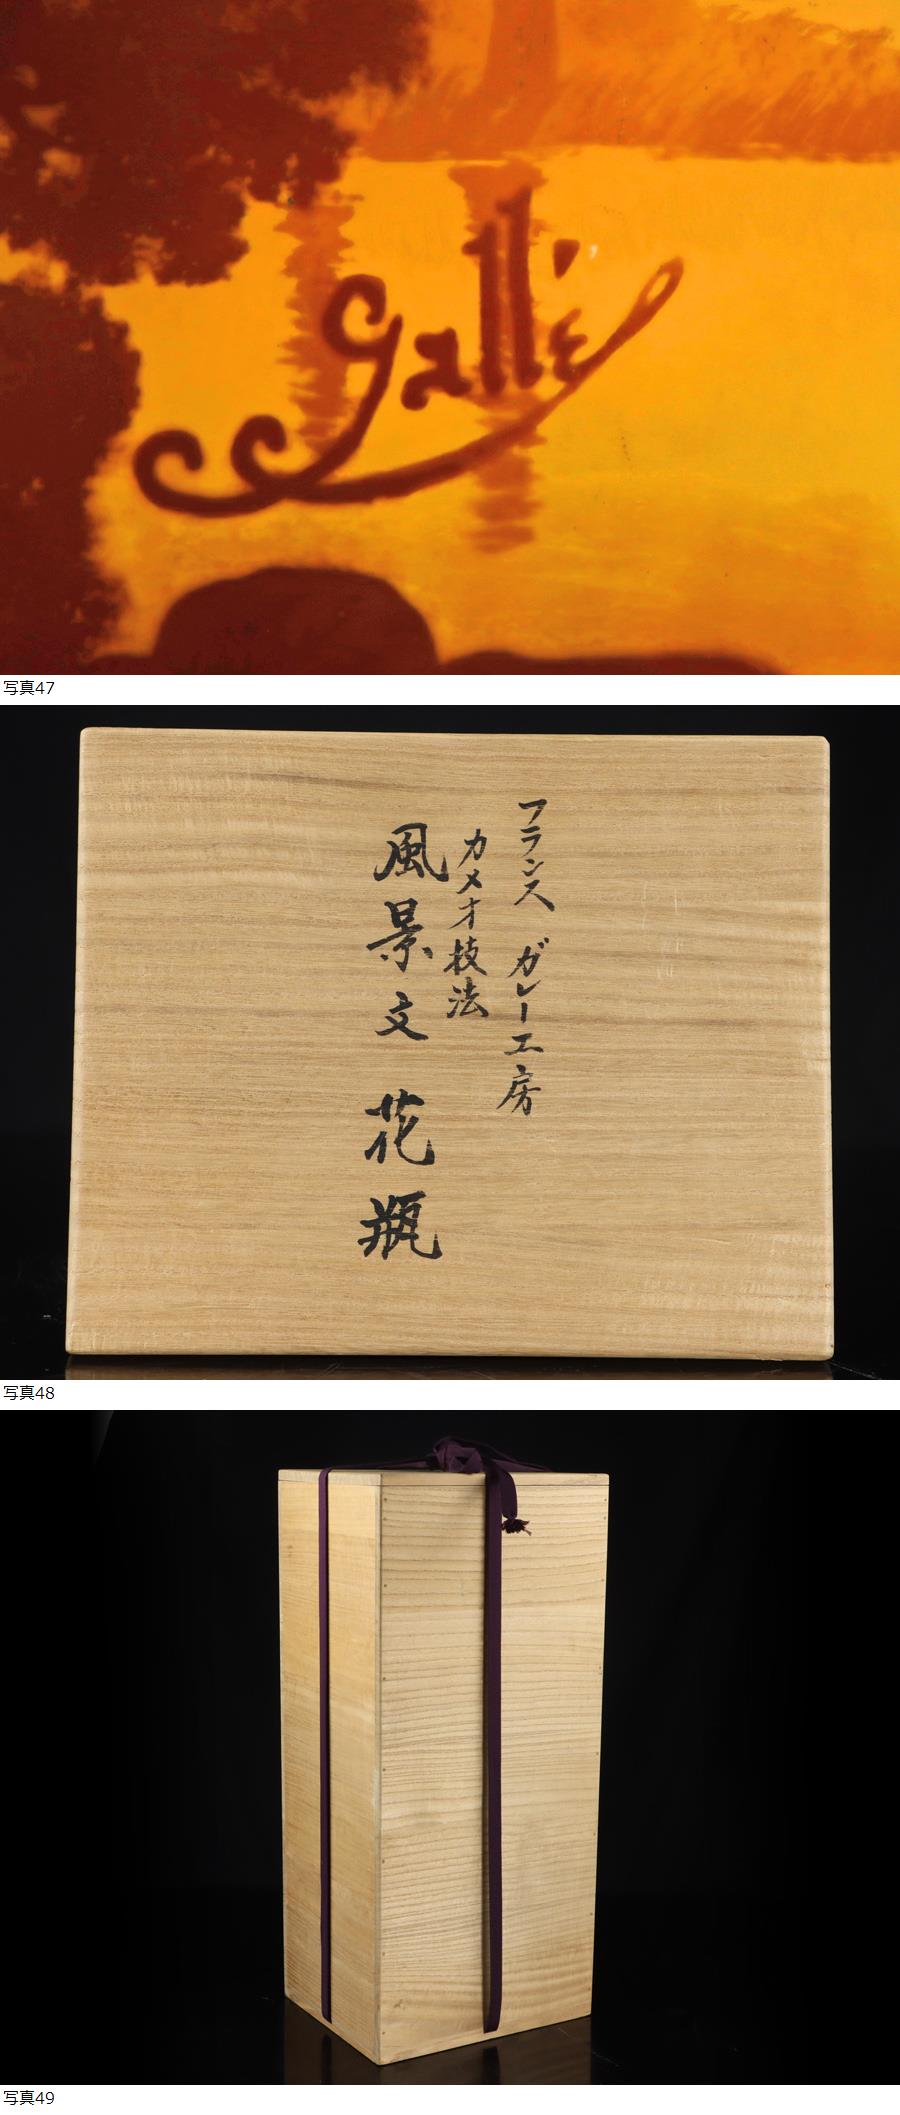 Gallé
写真47
フランス ガレー工房
カメオ技法
風景文 花瓶
写真48
写真49